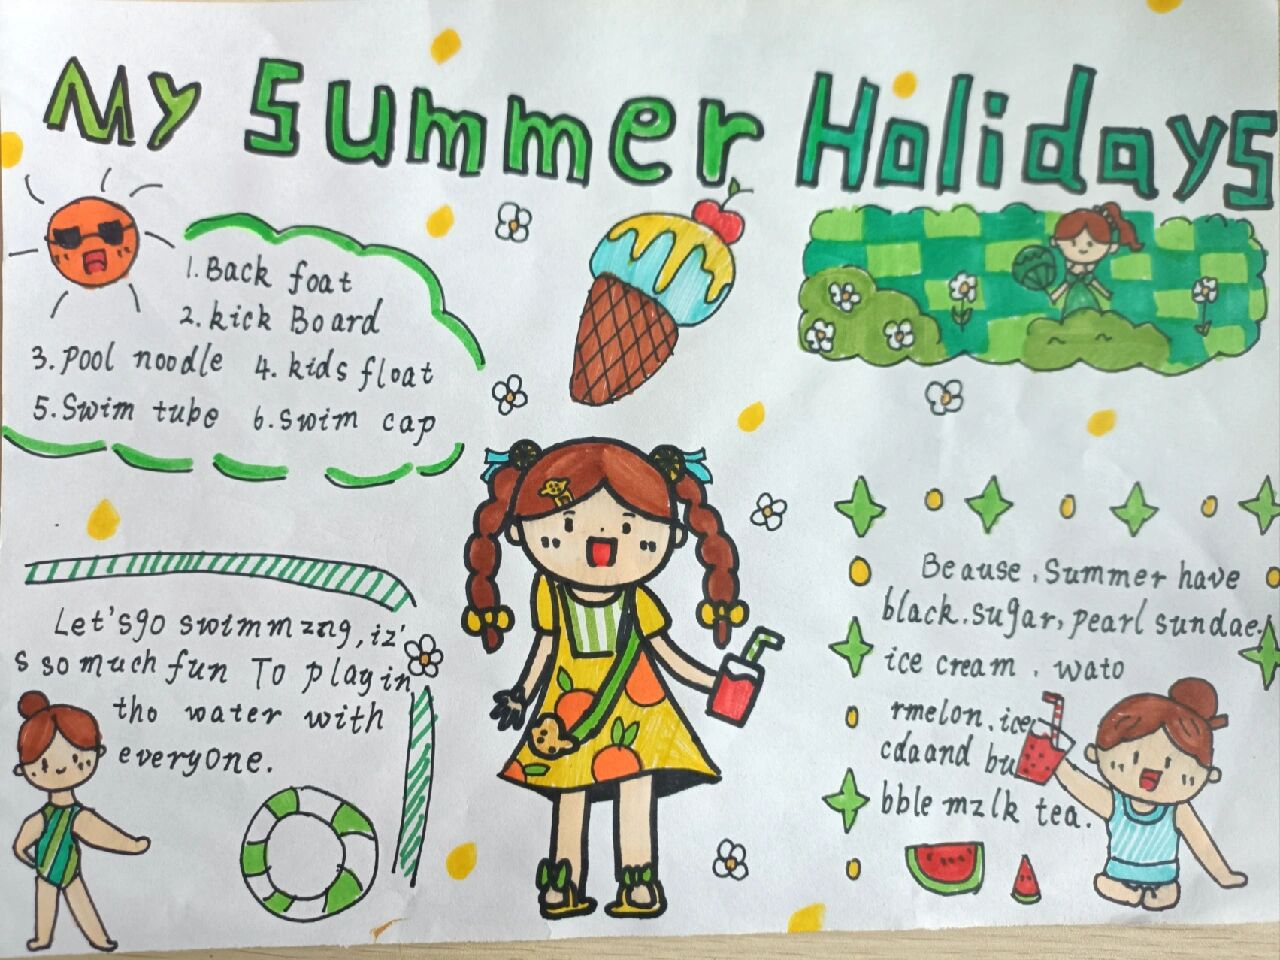 My Summer Holidays
1. Back foat
2. kick Board
3. pool noodle 4. kids float
5. Swim tube 6. swim cap
Let's go swimmzng, iz'
s so much fun To play in
tho water with
everyone.
Beause. Summer have
black. sugar, pearl sundae.
ice cream. wato
rmelon. ice
cdaand bu
bble mzlk tea.